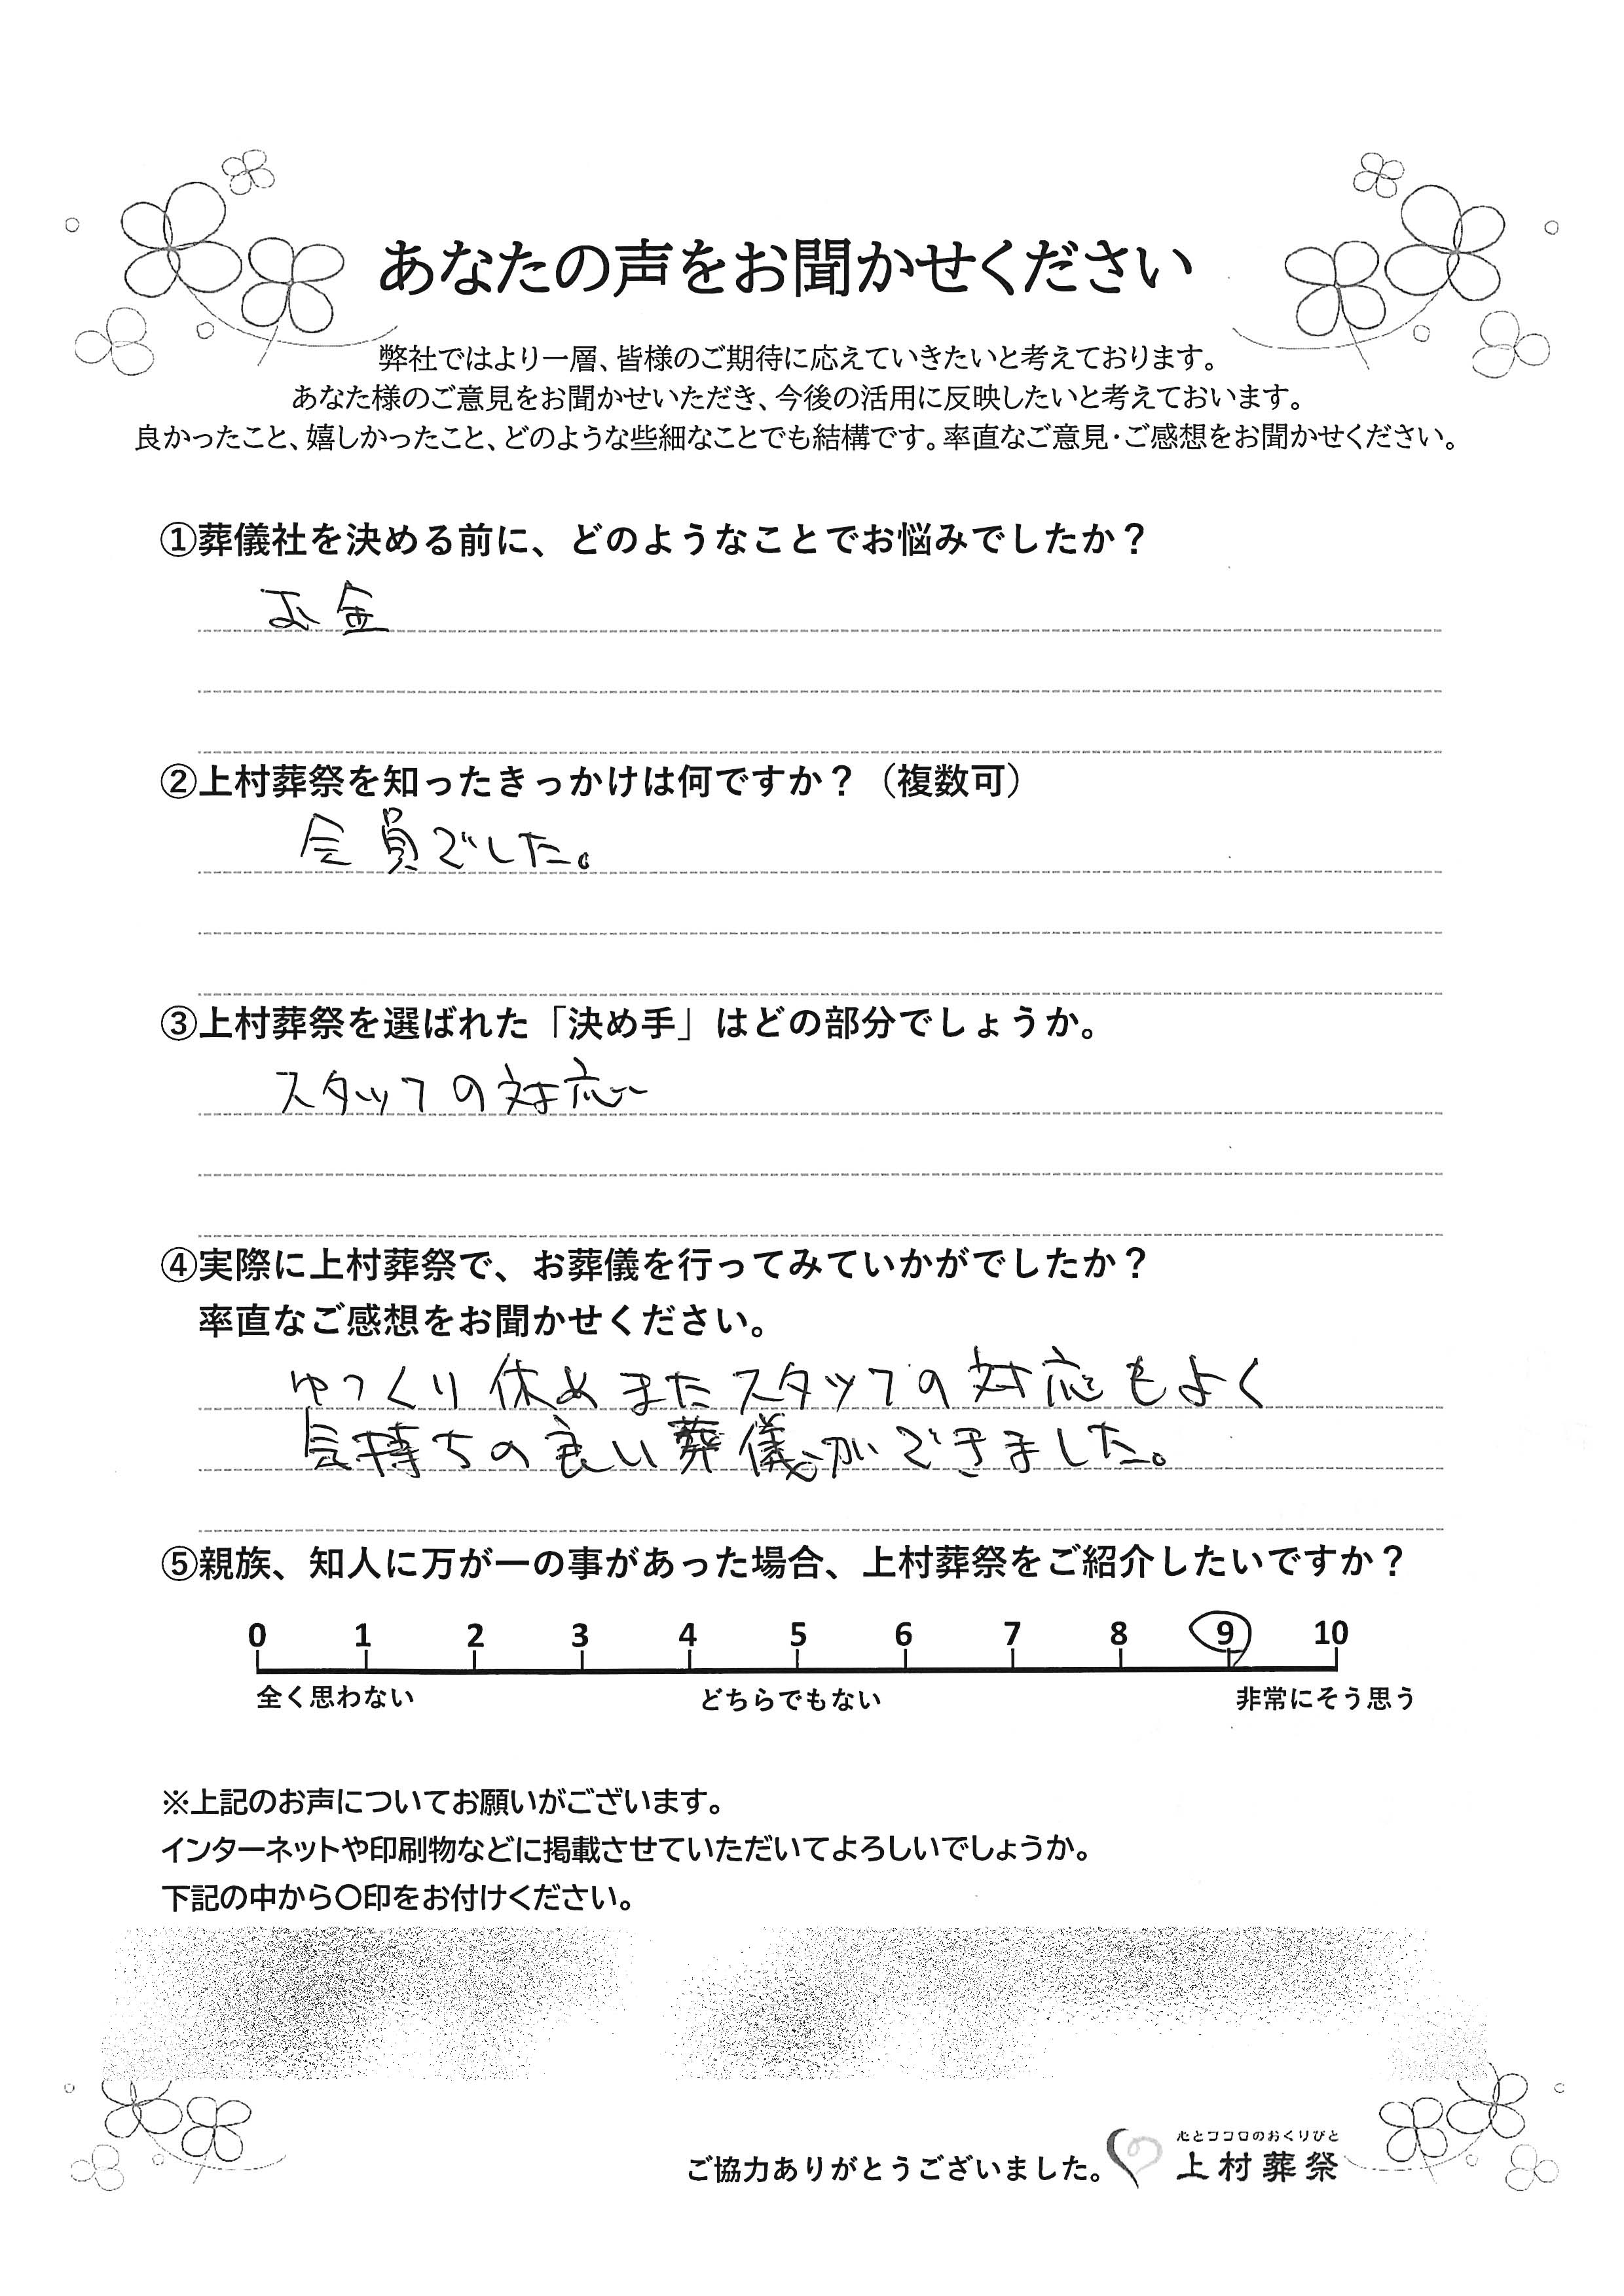 あなたの声をお聞かせください
弊社ではより一層、皆様のご期待に応えていきたいと考えております。
あなた様のご意見をお聞かせいただき、今後の活用に反映したいと考えておいます。
良かったこと、嬉しかったこと、どのような些細なことでも結構です。率直なご意見・ご感想をお聞かせください。
①葬儀社を決める前に、どのようなことでお悩みでしたか？
お金
②上村葬祭を知ったきっかけは何ですか？（複数可）
会員でした。
③上村葬祭を選ばれた「決め手」はどの部分でしょうか。
スタッフの対応
④実際に上村葬祭で、お葬儀を行ってみていかがでしたか？
率直なご感想をお聞かせください。
ゆっくり休めまたスタッフの対応もよく
気持ちの良い葬儀ができました。
⑤親族、知人に万が一の事があった場合、上村葬祭をご紹介したいですか？
0 1 2 3 4 5 6 7 8 9 10
全く思わない どちらでもない 非常にそう思う
※上記のお声についてお願いがございます。
インターネットや印刷物などに掲載させていただいてよろしいでしょうか。
下記の中から〇印をお付けください。
心とココロのおくりびと
ご協力ありがとうございました。 上村葬祭